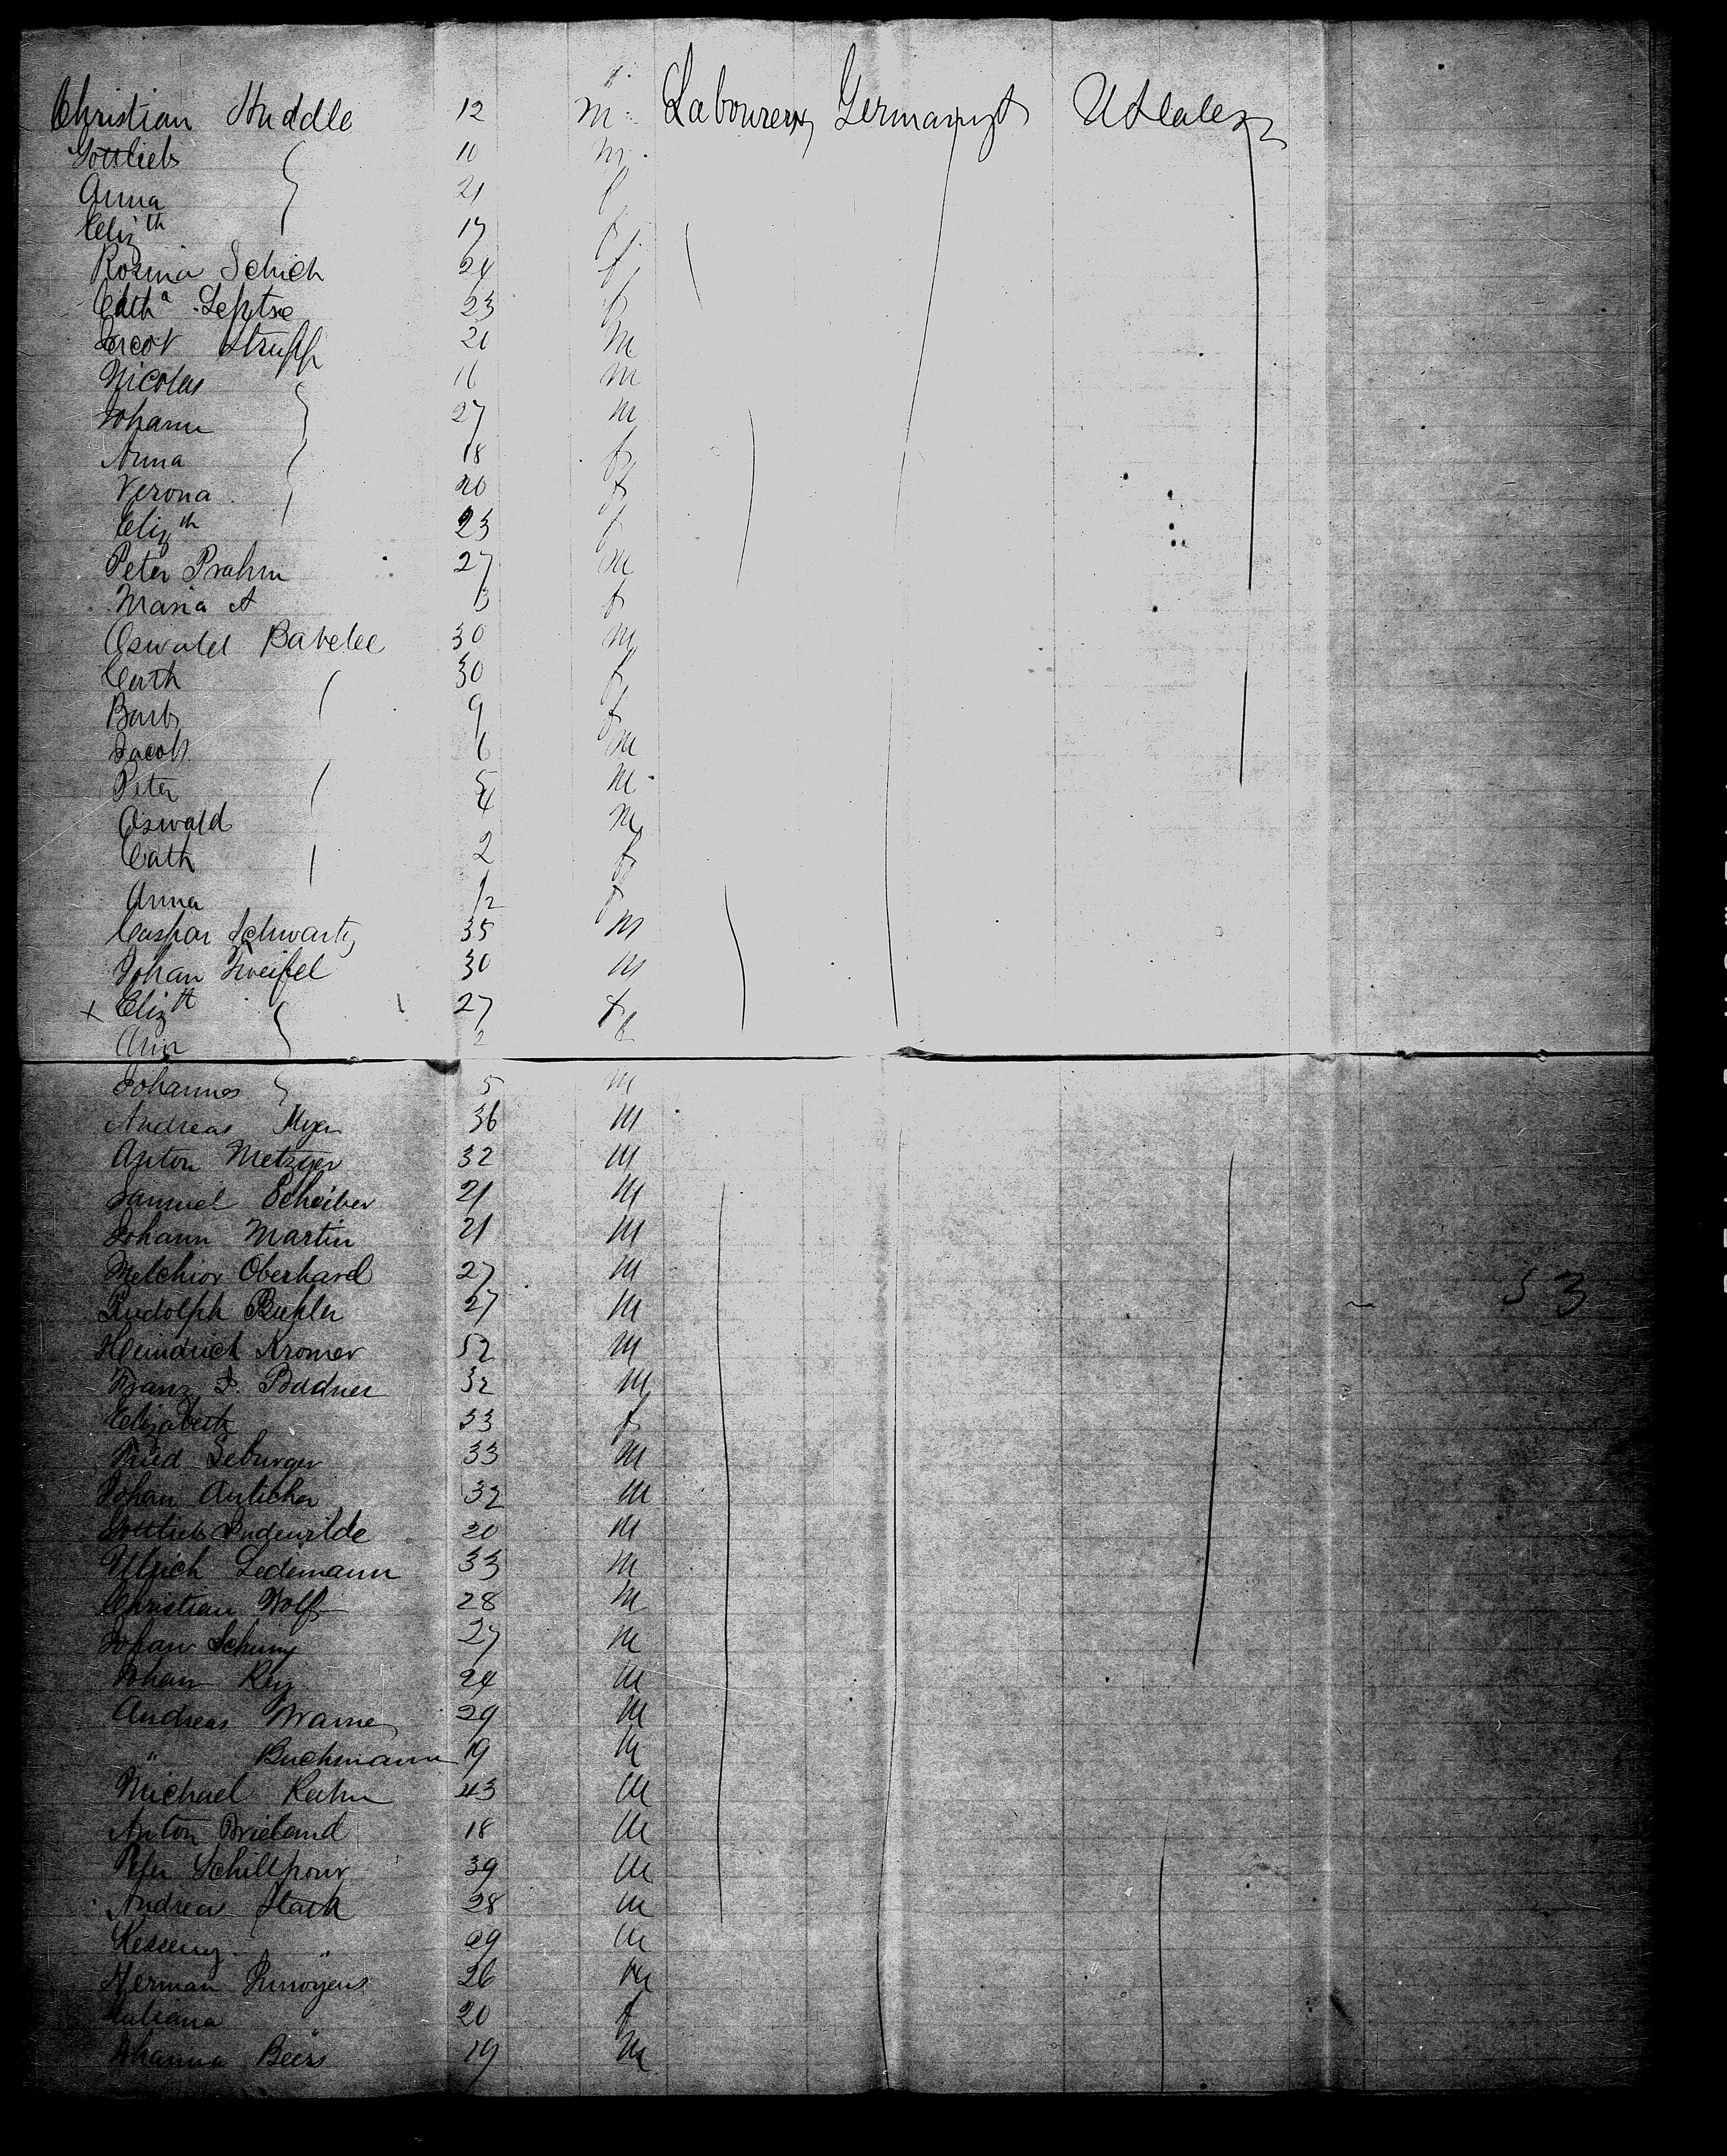 Christian Huddle 12 m Labourers Germany U States
Gottlieb 10 m
Anna 21 f
Eliz th 17 f
Rosina Schich 24 f
Cath a 23 f
Jacob Strupp 20 m
Nicolas 16 m
Johann 27 m
Anna 18 f
Verona 20 f
Eliz th 23 f
Peter Prahm 27 m
Maria A 3 f
Oswald Babelee 30 m
Cath 30 f
Barb 9 f
Jacob 6 m
Peter 5 m
Oswald 4 m
Cath 2 f
Anna 1/2 f
Caspar Schwartz 35 m
Johan Zweifel 30 m
x Eliz th 27 f
Ann 2 f
Johannes 5 m
Andreas Myer 36 m
Anton Metzger 32 m
Samuel Scheiber 21 m
Johann Martin 21 m
Melchior Oberhard 27 m 53
Rudolph Buhler 27 m
Heindrich Kromer 52 m
Franz J. Boddner 32 m
Elizabeth 33 f
Fried Seburger 33 m
Johan 32 m
Gottlieb 20 m
Ulrich Ledemann 33 m
Christian Wolf 28 m
Johan Schumy 27 m
Johan Rey 24 m
Andreas 29 m
" Buchmann 19 m
Michael Kuhn 43 m
Anton Brieland 18 m
Peter 39 m
Andreas Stath 28 m
" 29 m
Herman 26 m
Juliana " 20 f
Johanna Beers 19 m